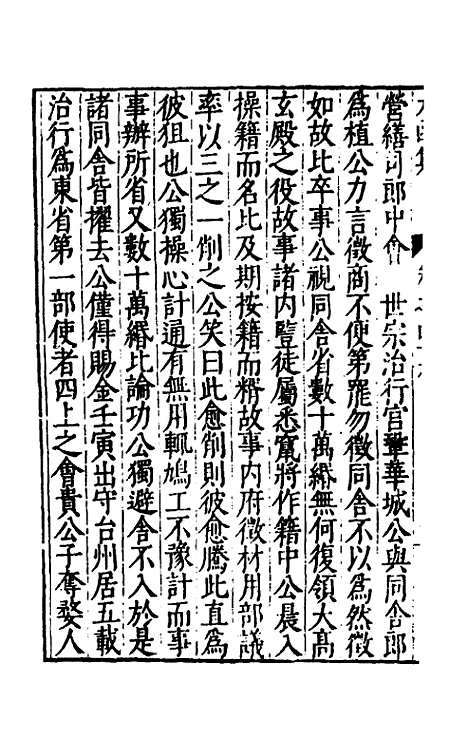 營繕司郎中會　世宗治行宮鞏華城公與同舍郎
為植公力言徵商不便第罷勿徵同舍不以為然徵
如故比卒事公視同舍省數十萬緡無何復領大高
玄殿之役故事諸內豎徒屬悉竄將作籍中公晨入
操籍而名比及期按籍而稽故事內府徵材用部議
率以三之一削之公笑曰此愈削則彼愈騰此直為
彼狙也公獨操心計通有無用輒鳩工不豫計而事
事辦所省又數十萬緡比論功公獨避舍不入於是
諸同舍皆擢去公僅得賜金壬寅出守台州居五載
治行為東省第一部使者四上之會貴公子奪婺人